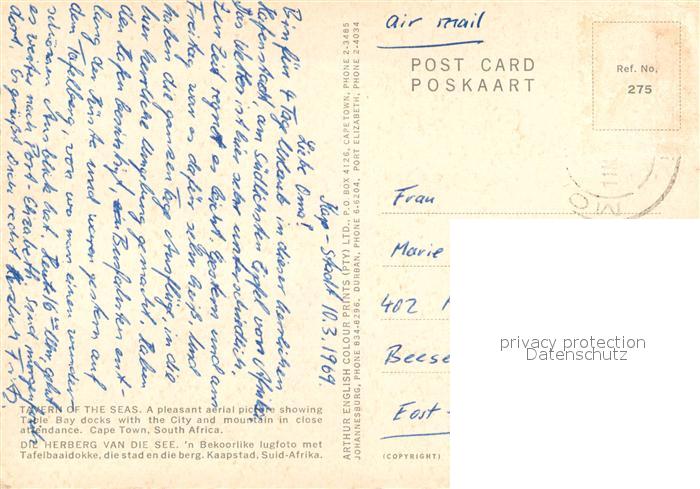 Kap-Stadt 10.3.1969.
Liebe Oma!
Bin für 4 Tage Urlaub in dieser herrlichen
Hafenstadt am südlichsten Zipfel von Afrika.
Das Wetter ist hier sehr unterschiedlich,
zur Zeit regnet es leicht. Gestern und am
Freitag war es dafür sehr heiß. Und
haben die ganzen Tage Ausflüge, in die
hier herrliche Umgebung gemacht. Haben
den Hafen besichtigt, Busfahrten ent-
lang der Küste und waren gestern auf
dem Tafelberg, von wo man einen wunder
schönen Ausblick hat. Heute 16 Uhr, geht
es weiter nach Port-Elizabeth, sind morgen
dort. Es grüßt Dich recht
TAVERN OF THE SEAS. A pleasant aerial picture showing
Table Bay docks with the City and mountain in close
attendance. Cape Town, South Africa.
DIE HERBERG VAN DIE SEE. 'n Bekoorlike lugfoto met
Tafelbaaidokke, die stad en die berg. Kaapstad, Suid-Afrika.
ARTHUR ENGLISH COLOUR PRINTS (PTY) LTD., P.O. BOX 4126, CAPE TOWN, PHONE 2-3485
JOHANNESBURG, PHONE 834-8296. DURBAN, PHONE 6-6204. PORT ELIZABETH, PHONE 2-4034
air mail
POST CARD
POSKAART
Ref. No.
275
Frau
Marie
402
Beese
East-
(COPYRIGHT)
privacy protection
Datenschutz